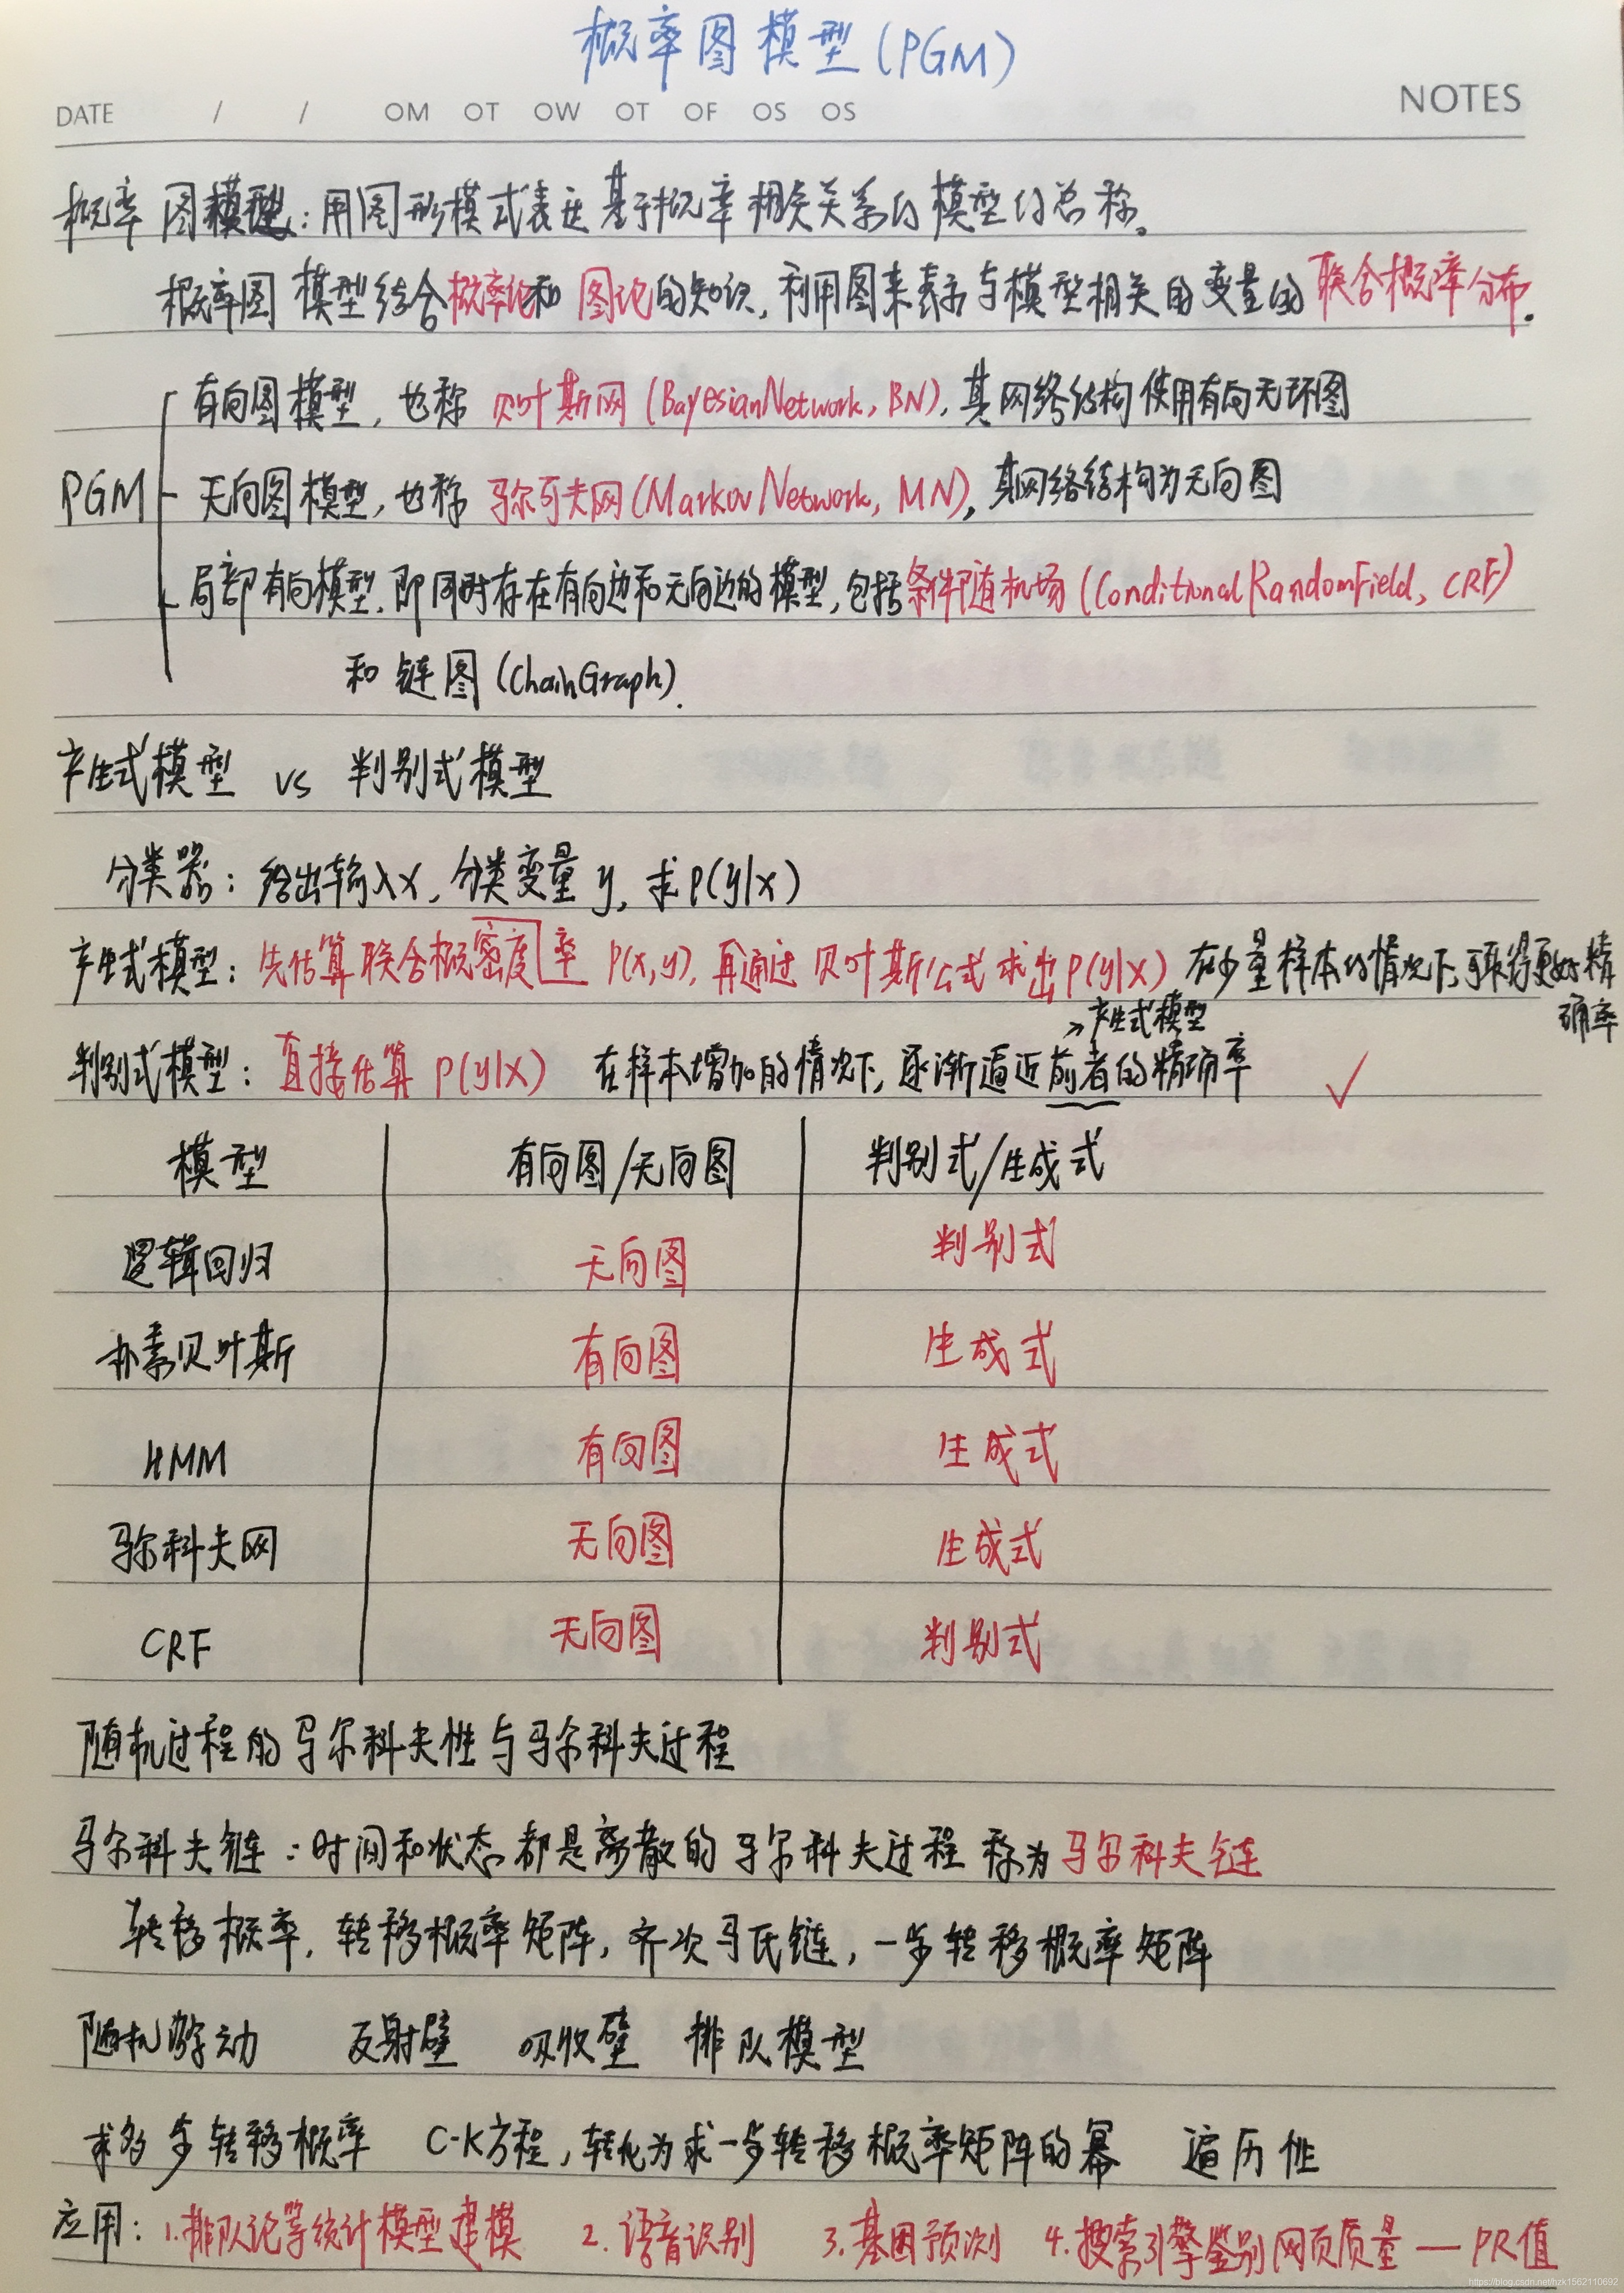 概率图模型(PGM)
DATE / / OM OT OW OT OF OS OS NOTES
概率图模型:用图形模式表达基于概率相关关系的模型的总称。
概率图模型结合概率论和图论的知识,利用图来表示与模型相关的变量的联合概率分布.
有向图模型,也称贝叶斯网(BayesianNetwork, BN),其网络结构使用有向无环图
PGM 无向图模型,也称马尔可夫网(Markov Network, MN),其网络结构为无向图
局部有向模型.即同时存在有向边和无向边的模型,包括条件随机场(ConditionalRandomField, CRF)
和链图(ChainGraph).
产生式模型 vs 判别式模型
分类器:给出输入x,分类变量y,求P(y|x)
产生式模型:先估算联合概密度率 P(x,y),再通过贝叶斯公式求出P(y|x) 在少量样本的情况下,可取得更好精
确率
产生式模型
判别式模型:直接估算 P(y|x) 在样本增加的情况下,逐渐逼近前者的精确率 ✓
模型 有向图/无向图 判别式/生成式
逻辑回归 无向图 判别式
朴素贝叶斯 有向图 生成式
HMM 有向图 生成式
马尔科夫网 无向图 生成式
CRF 无向图 判别式
随机过程的马尔科夫性与马尔科夫过程
马尔科夫链:时间和状态都是离散的马尔科夫过程称为马尔科夫链
转移概率,转移概率矩阵,齐次马氏链,一步转移概率矩阵
随机游动 反射壁 吸收壁 排队模型
求多步转移概率 C-K方程,转化为求一步转移概率矩阵的幂 遍历性
应用:1.排队论等统计模型建模 2.语音识别 3.基因预测 4.搜索引擎鉴别网页质量—PR值
https://blog.csdn.net/hzk1562110692